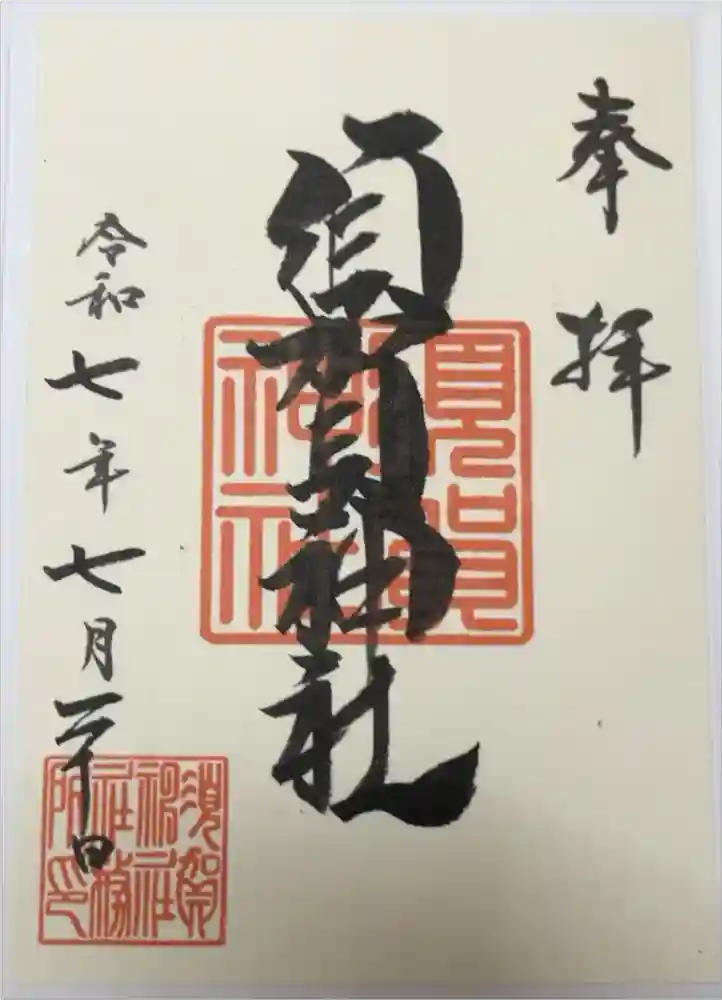 奉拝
須賀神社
須賀神社
令和七年七月二十日
須賀神社社務所印